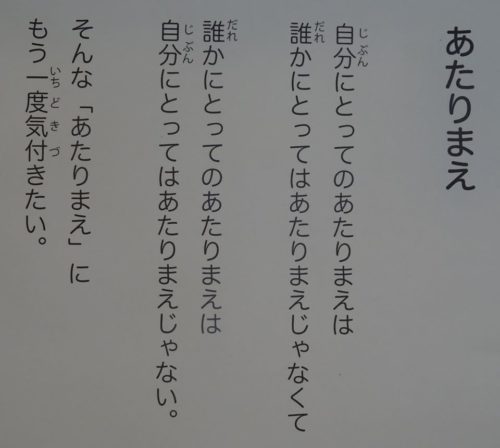 あたりまえ
自分にとってのあたりまえは
誰かにとってはあたりまえじゃなくて
誰かにとってのあたりまえは
自分にとってはあたりまえじゃない。
そんな「あたりまえ」に
もう一度気付きたい。